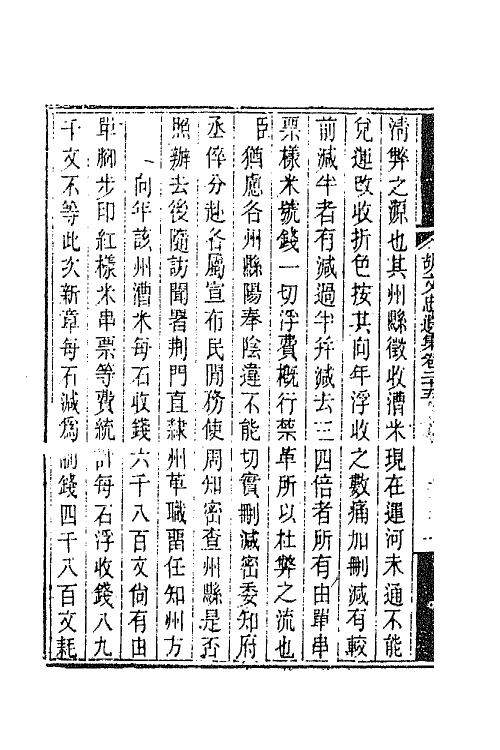 清弊之源也其州縣徵收漕米現在運河未通不能
兌運改收折色按其向年浮收之數痛加刪減有較
前減半者有減過半并減去三四倍者所有由單串
票樣米號錢一切浮費概行禁革所以杜弊之流也
臣猶慮各州縣陽奉陰違不能切實刪減密委知府
丞倅分赴各屬宣布民間務使周知密查州縣是否
照辦去後隨訪聞署荆門直隸州革職留任知州方
向年該州漕米每石收錢六千八百文尙有由
單腳步印紅樣米串票等費統計每石浮收錢八九
千文不等此次新章每石減爲制錢四千八百文耗
胡文忠遺集卷二十五